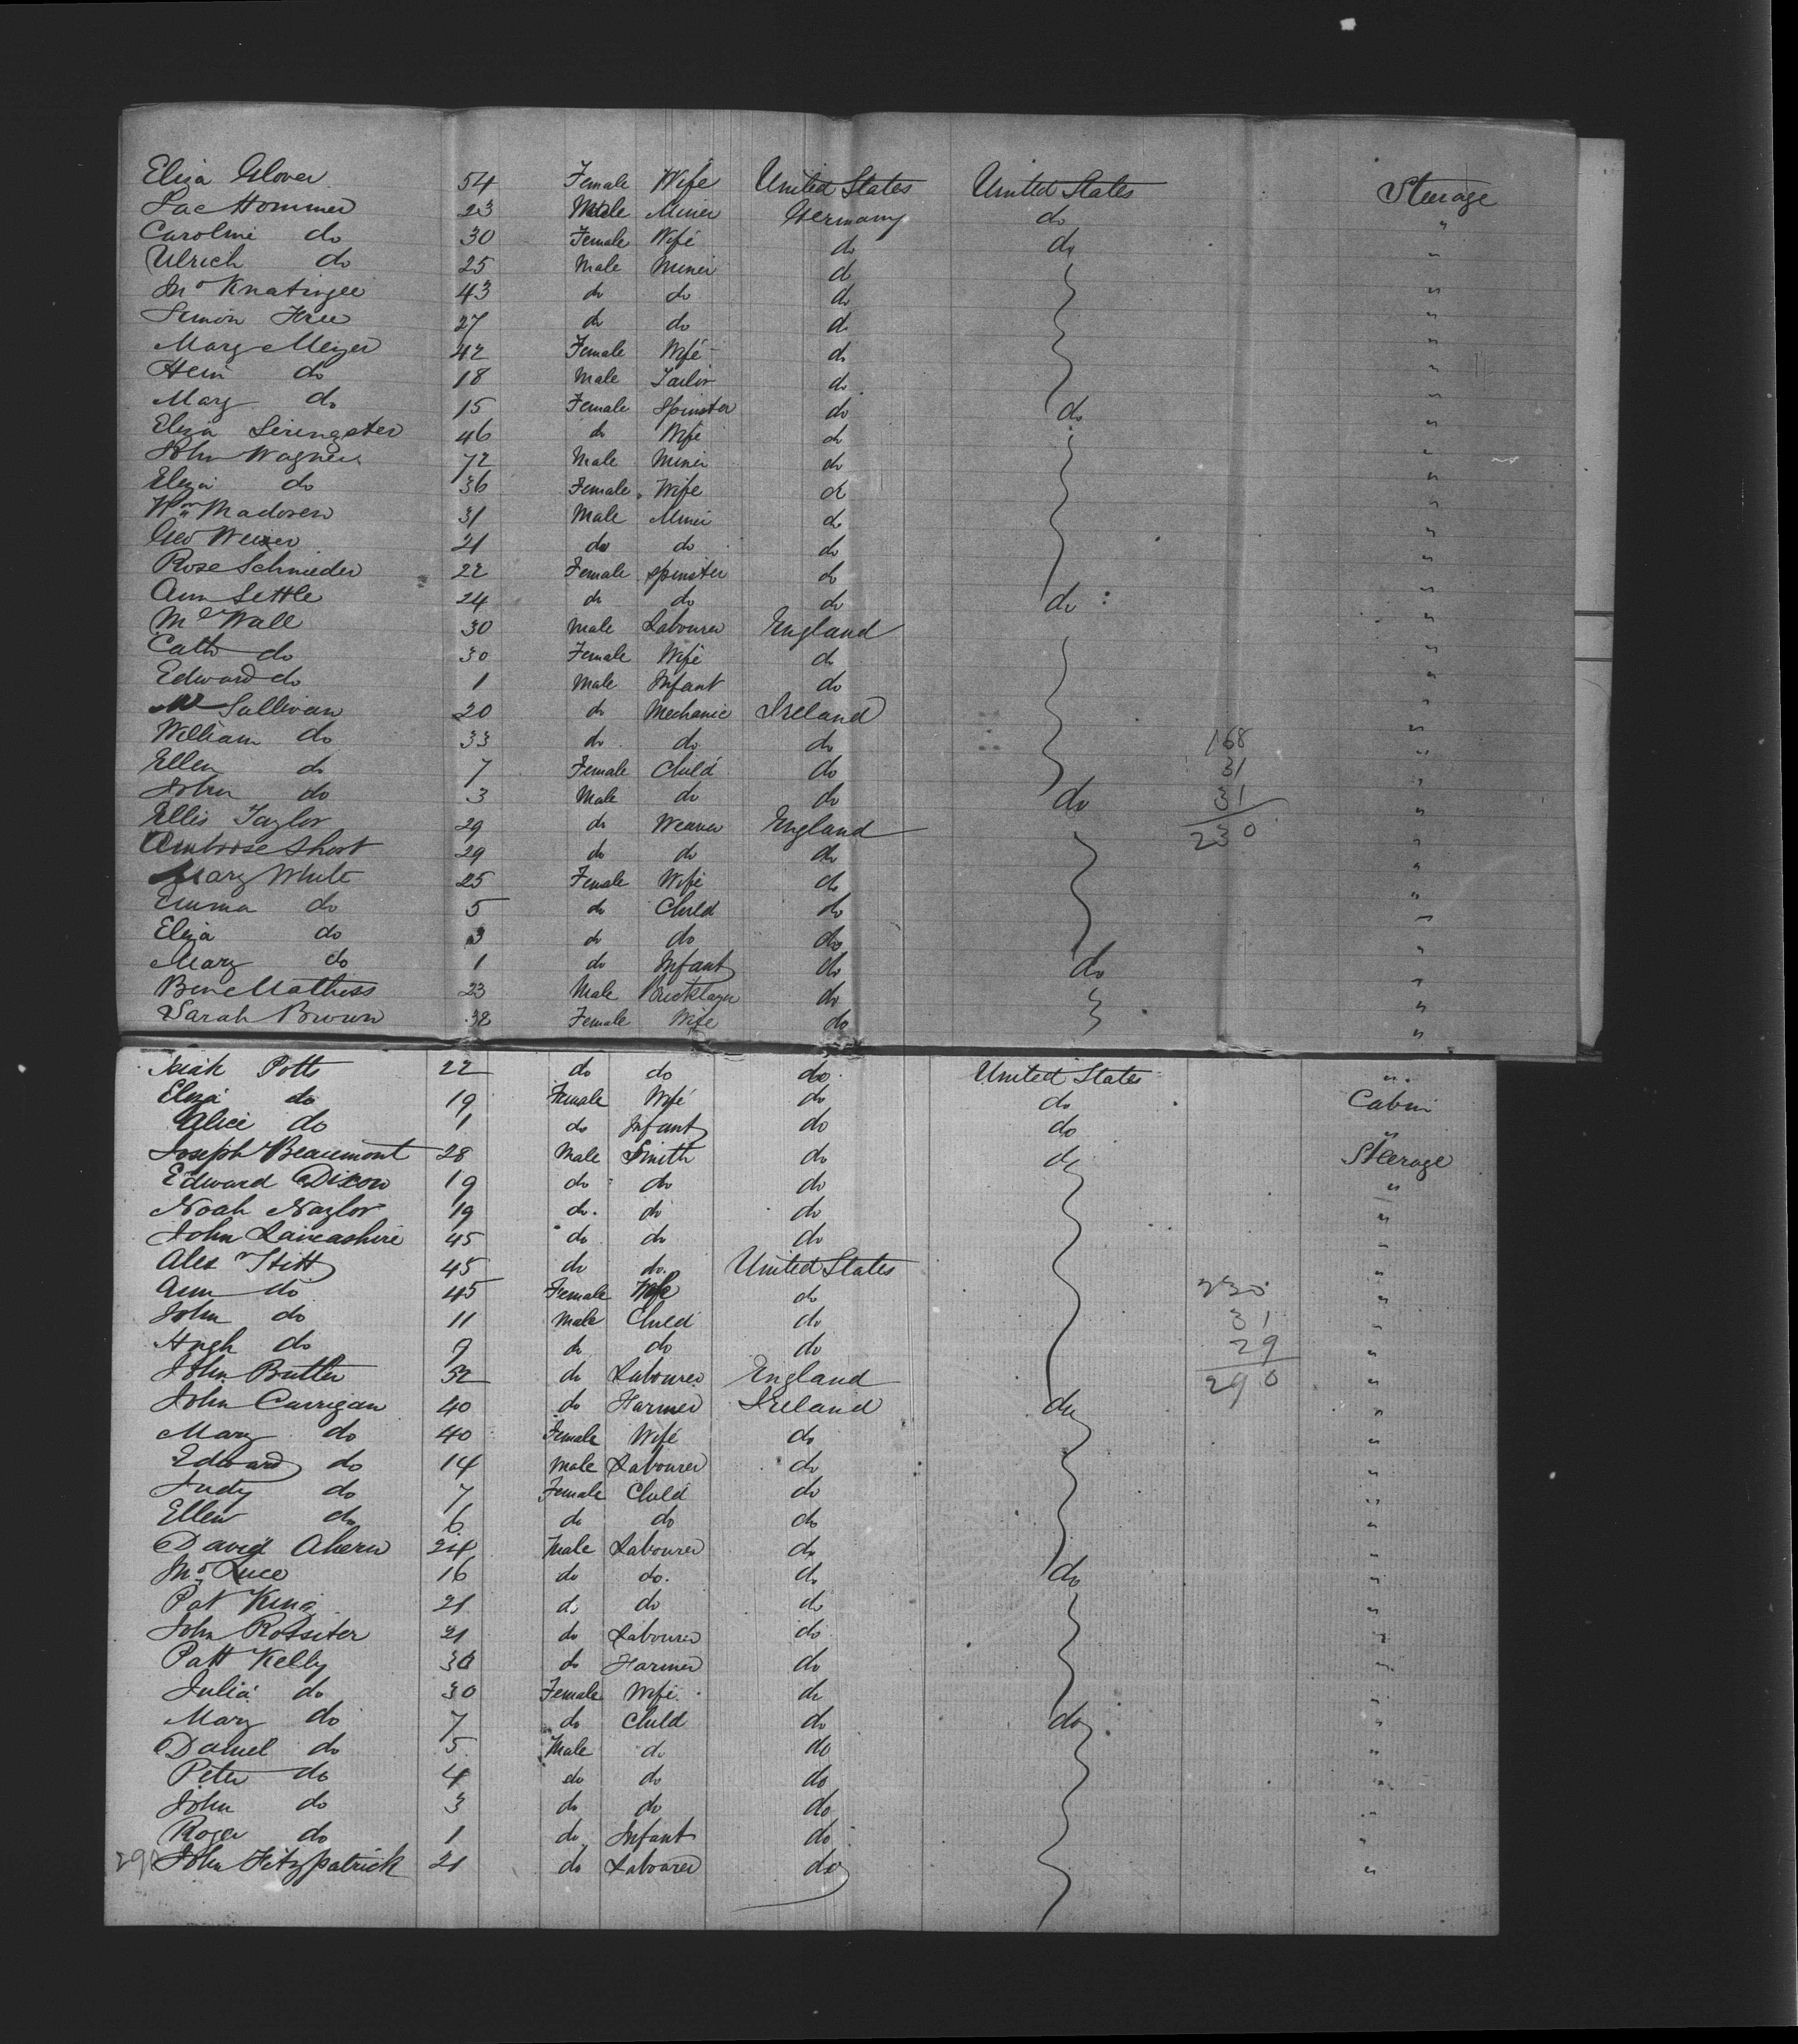 Eliza Glover 54 Female Wife United States United States Steerage
Jac Hommer 23 Male Miner Germany do "
Caroline do 30 Female Wife do do "
Ulrich do 25 Male Miner do "
Jno 43 do do do "
Simon 27 do do do "
Mary Meyer 42 Female Wife do "
Hein do 18 Male Tailor do "
Mary do 15 Female Spinster do do "
Eliza 46 do Wife do "
John Wagner 72 Male Miner do "
Eliza do 36 Female Wife do "
Wm Madoren 31 Male Miner do "
Geo Weizer 21 do do do "
Rose Schnieder 22 Female Spinster do "
Ann Settle 24 do do do do "
Ml Wall 30 Male Labourer England "
Cath do 30 Female Wife do "
Edward do 1 Male Infant do "
Sullivan 20 do Mechanic Ireland "
William do 33 do do do 168 "
Ellen do 7 Female Child do 31 "
John do 3 Male do do do 31 "
Ellis Taylor 29 do Weaver England 230 "
Ambrose Short 29 do do do "
Mary White 25 Female Wife do "
Emma do 5 do Child do "
Eliza do 3 do do do "
Mary do 1 do Infant do do "
Ben Mathess 23 Male Bricklayer do "
Sarah Brown 32 Female Wife do "
Isiah Potts 22 do do do United States "
Eliza do 19 Female Wife do do Cabin
Alice do 1 do Infant do do "
Joseph Beaumont 28 Male Smith do do Steerage
Edward Dixon 19 do do do "
Noah Naylor 19 do do do "
John Lancashire 45 do do do "
Alex Stitt 45 do do United States "
Ann do 45 Female Wife do 230 "
John do 11 Male Child do 31 "
Hugh do 9 do do do 29 "
John Butler 32 do Labourer England 290 "
John Carrigan 40 do Farmer Ireland do "
Mary do 40 Female Wife do "
Edward do 14 Male Labourer do "
Judy do 7 Female Child do "
Ellen do 6 do do do "
David Ahern 24 Male Labourer do "
Jno Luce 16 do do do do "
Pat King 21 do do do "
John Rossiter 21 do Labourer do "
Patt Kelly 30 do Farmer do "
Julia do 30 Female Wife do "
Mary do 7 do Child do do "
Daniel do 5 Male do do "
Peter do 4 do do do "
John do 3 do do do "
Roger do 1 do Infant do "
290 John Fitzpatrick 21 do Labourer do "